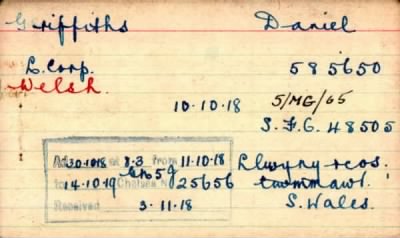 Griffiths Daniel
L. Corp. 585650
Welsh.
10.10.18 5/MG/65
S.F.G. 48505
Ad 30.10.18 at 3.3 from 11.10.18 Llwyny reos.
59
to 14.10.19 Chelsea N 25656
Received 3.11.18 S. Wales.